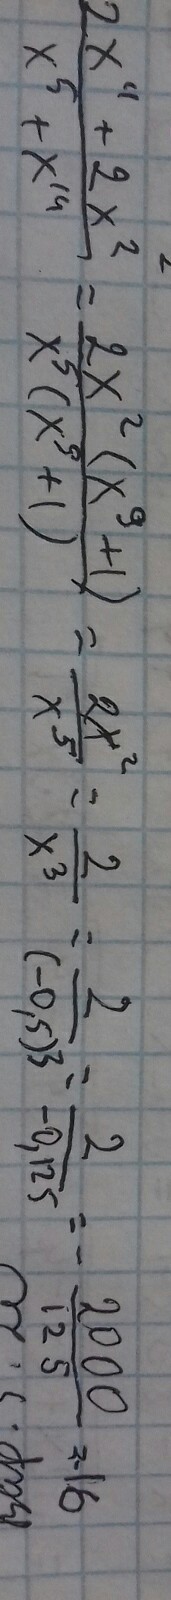 2x¹¹ + 2x² / x⁵ + x¹⁴ = 2x²(x⁹+1) / x⁵(x⁹+1) = 2x² / x⁵ = 2 / x³ = 2 / (-0,5)³ = 2 / -0,125 = - 2000 / 125 = 16